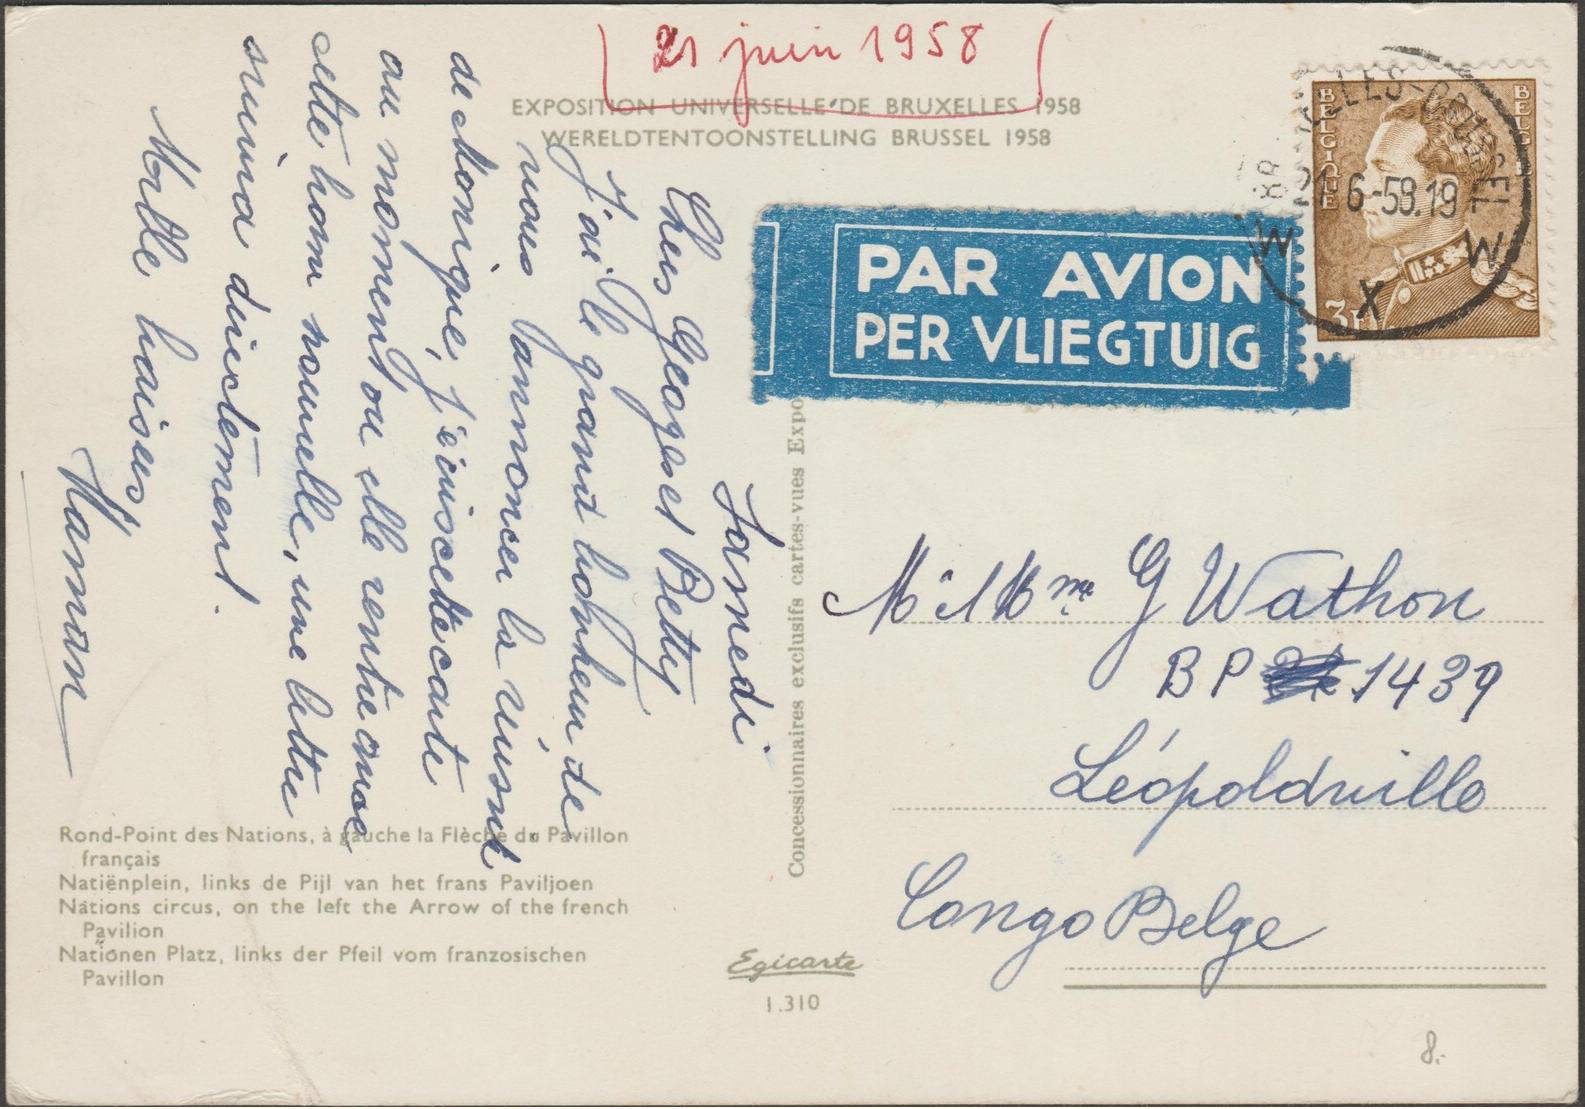 21 juin 1958
EXPOSITION UNIVERSELLE DE BRUXELLES 1958
WERELDTENTOONSTELLING BRUSSEL 1958
Samedi
Chers Georges et Betty
J'ai le grand bonheur de
vous annoncer la réussite
de Monique, j'écris cette carte
au moment où elle rentre avec
cette bonne nouvelle, une lettre
suivra directement.
Mille baisers
Maman
Rond-Point des Nations, à gauche la Flèche du Pavillon
français
Natiënplein, links de Pijl van het frans Paviljoen
Nations circus, on the left the Arrow of the french
Pavilion
Nationen Platz, links der Pfeil vom franzosischen
Pavillon
Concessionnaires exclusifs cartes-vues Expo
Egicarte
1.310
PAR AVION
PER VLIEGTUIG
BELGIQUE
BELGIE
3F
21 6-58.19
W W
X
M et Mme G Wathon
BP 1439
Léopoldville
Congo Belge
8.-